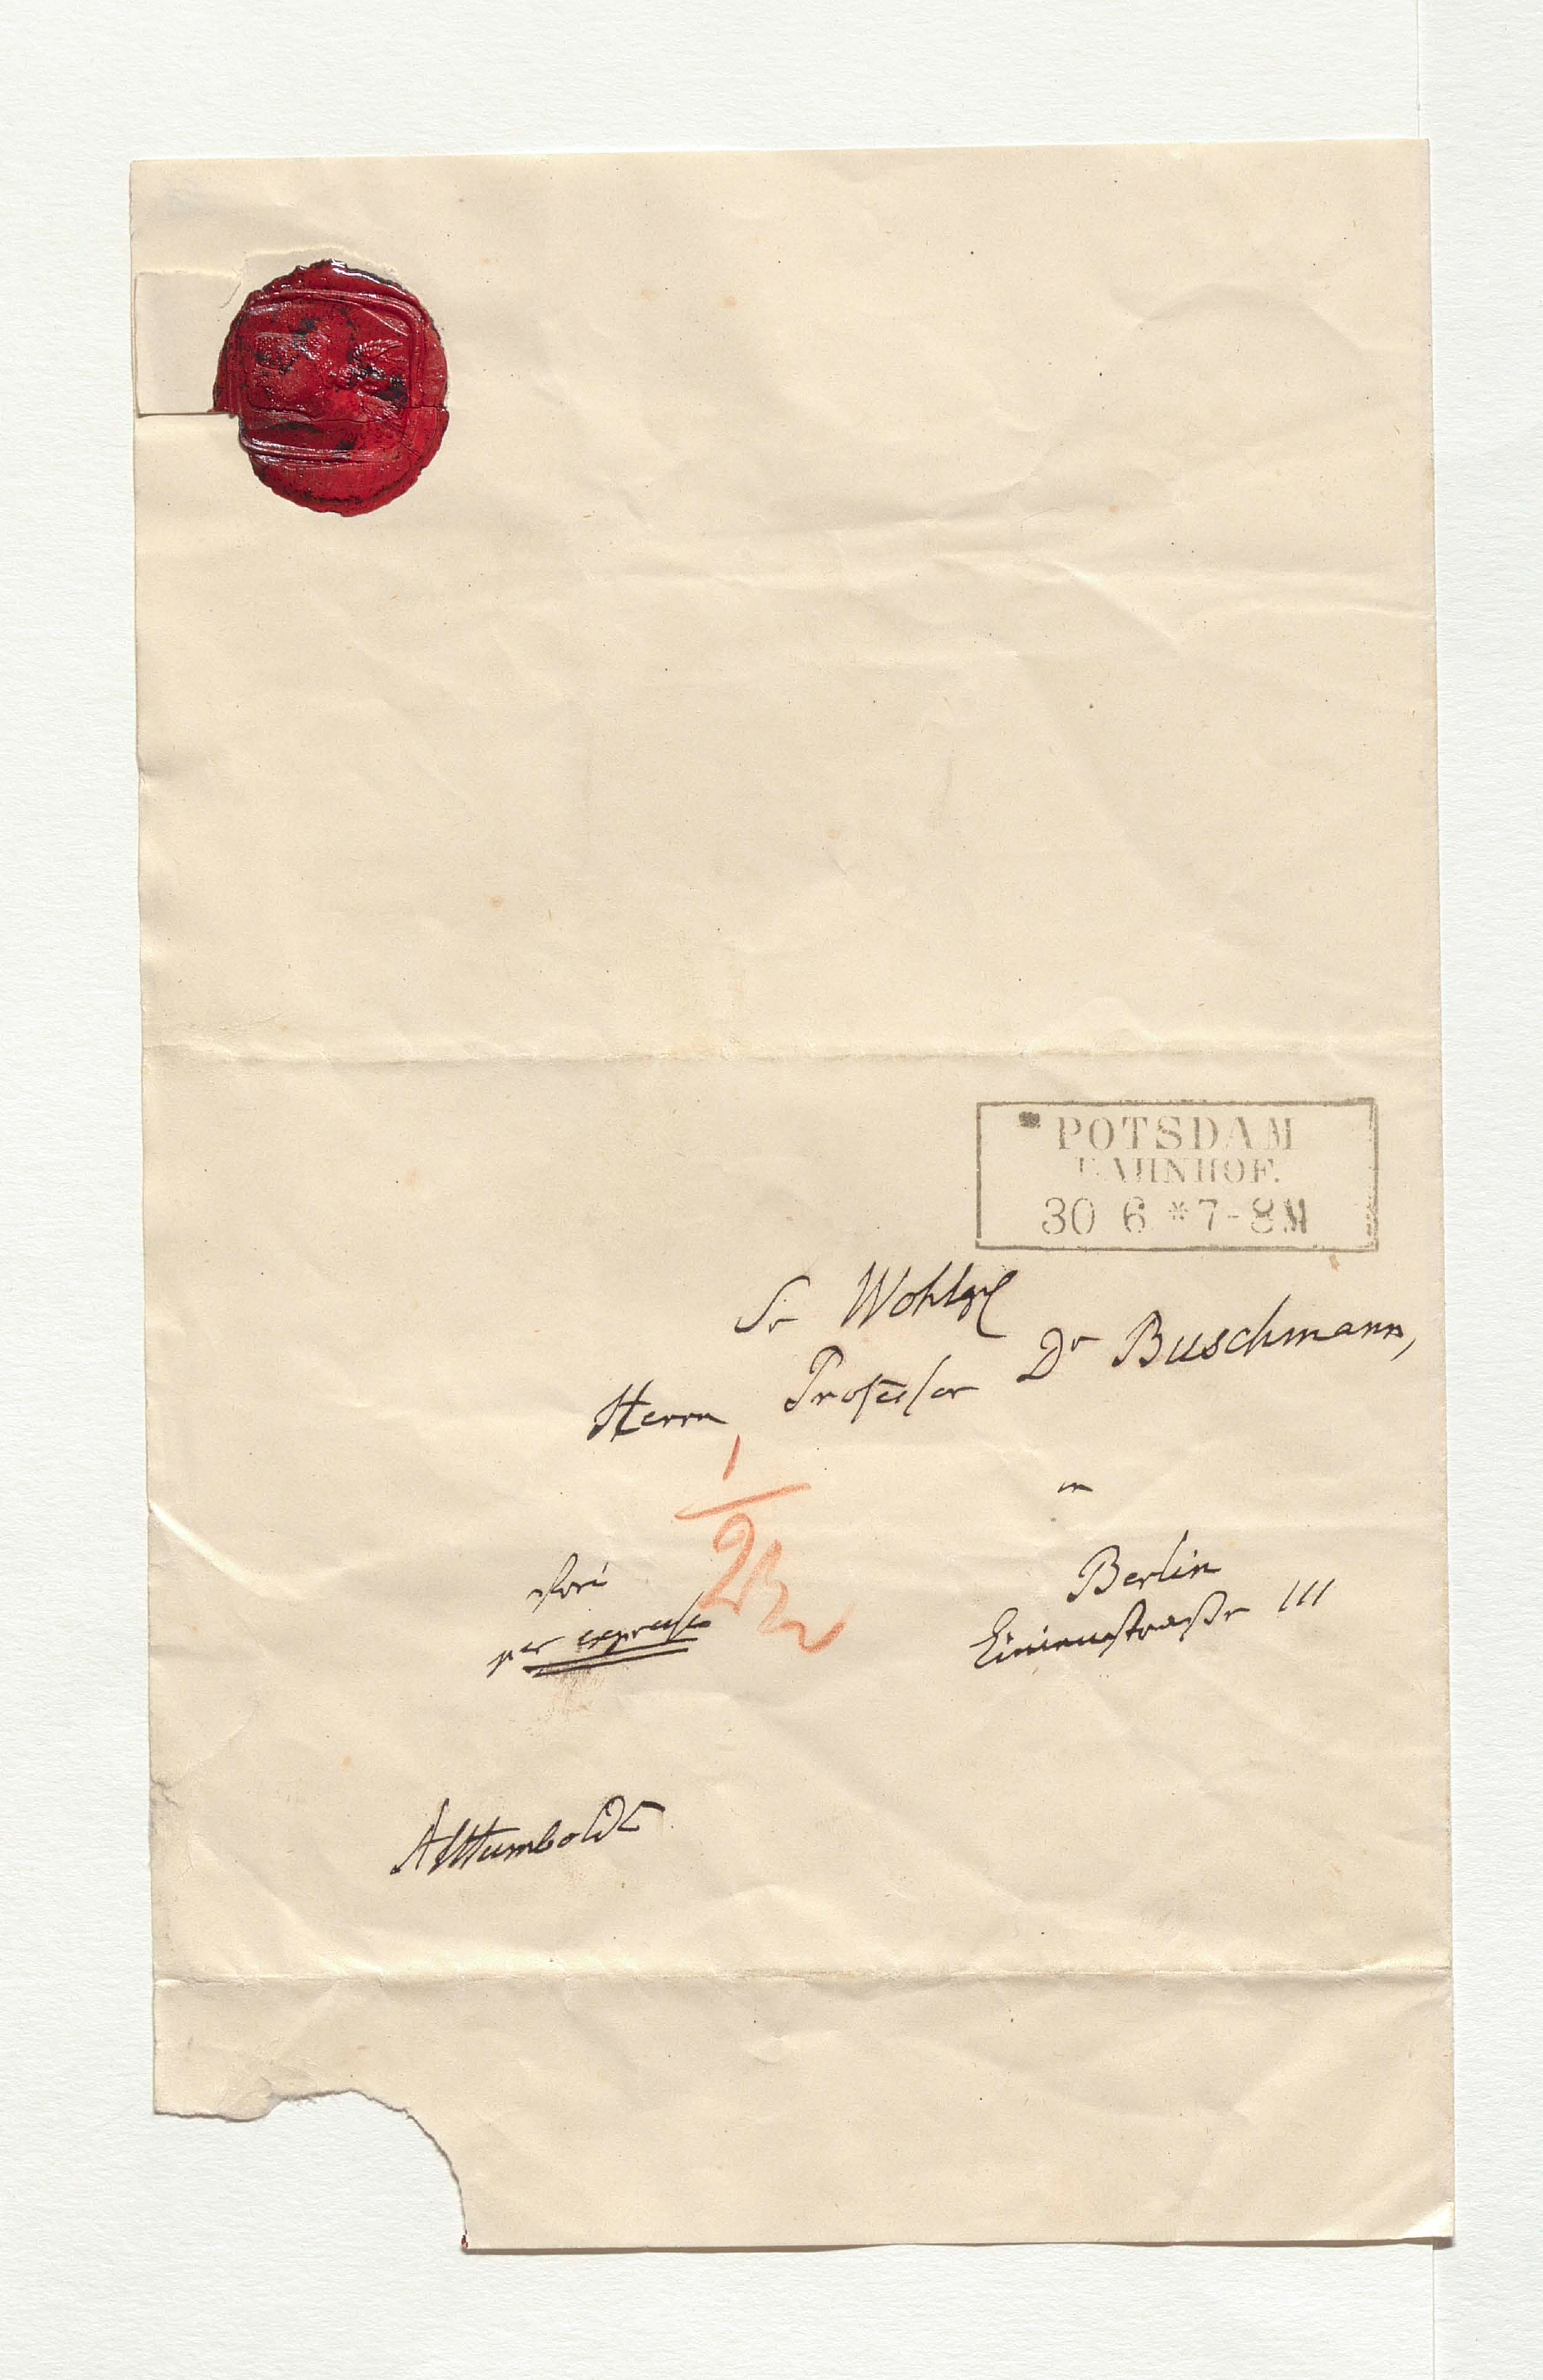 POTSDAM
BAHNHOF.
30 6 * 7-8 M
Sr Wohlg
Herrn Professor Dr Buschmann,
in
Berlin
Linienstraße 111
frei
per expresse
1/2
AvHumboldt